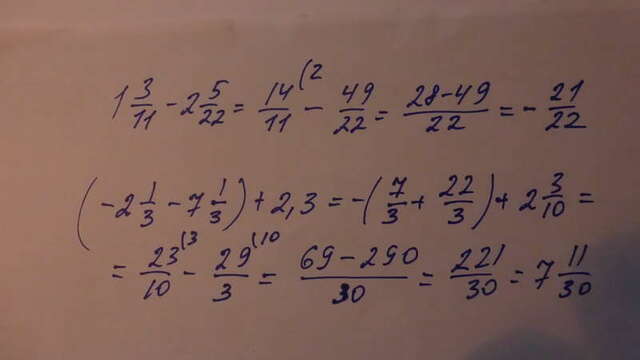 1 3/11 - 2 5/22 = 14/11 (2 - 49/22 = 28-49/22 = - 21/22
(-2 1/3 - 7 1/3) + 2,3 = -(7/3 + 22/3) + 2 3/10 =
= 23/10 (3 - 29/3 (10 = 69-290/30 = 221/30 = 7 11/30